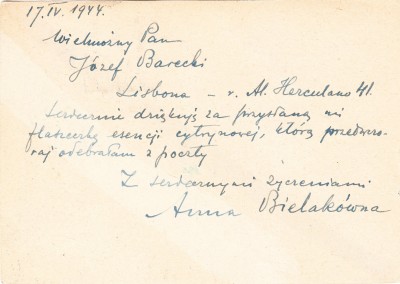 17.IV.1944.
Wielmożny Pan
Józef Barecki
Lisbona – r. Al. Herculano 41.
serdecznie dziękuję za przysłaną mi
flaszeczkę esencji cytrynowej, którą przedwczo-
raj odebrałam z poczty
Z serdecznymi życzeniami
Anna Bielakówna